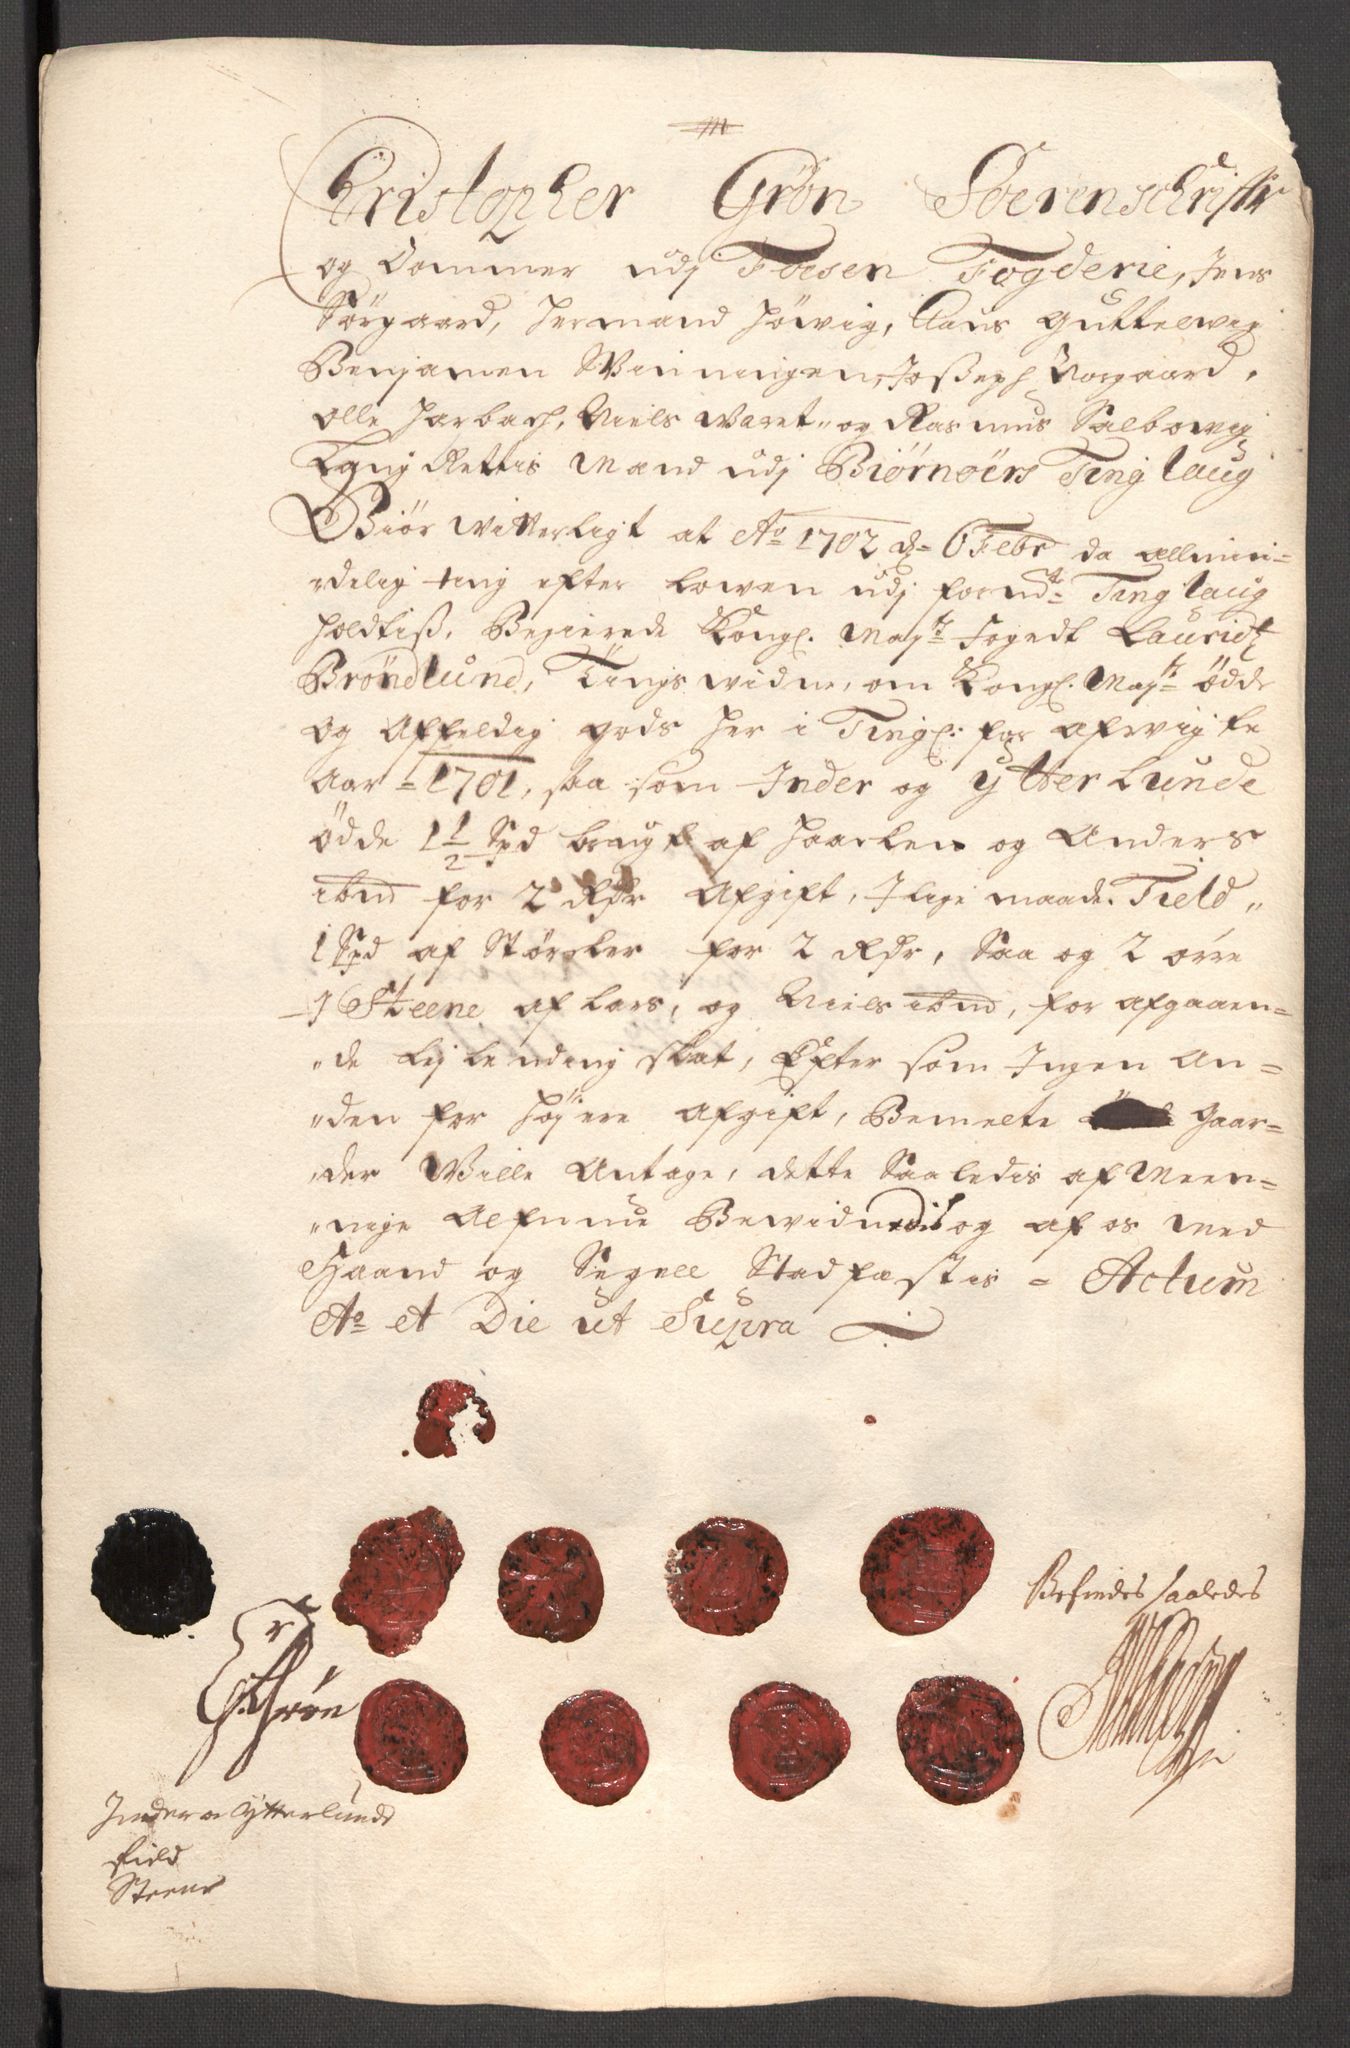 Christopher Grön Soerenschrifr
og Dommer udj Foesen Fogderie, Jens
Sörgaard, Hermand Höwig, Claus Guttelwig
Benjamen Winningen, Joßeph Norgaard,
Olle Harbach, Niels Waret og Rasmus Salbowig
Laug Rettis Mænd udj Biörnöers Ting laug
Giör Witterligt at Ao 1702 d= 6 Febr da allmin-
delig ting efter Lowen udj forn.de Ting laug
holdtiß, Begierede Kongl. May.ts Fogedt Lauridtz
Bröndlund, Tings widne, om Kongl. May.ts ödde
og affeldig gods her i Tingl: for afwigte
Aar = 1701, saa som Inder og ytter Lunde
ödde 1 1/2 Spd brugt af Haarlen og Anders
ibm for 2 Rdr Afgift, I lige maade Field
1 Spd af Størcker for 2 Rdr, Saa og 2 örre
i Steene af Lars, og Niels ibm, for afgaaen-
de Leylending skat, Efter som Ingen An-
den for höyere afgift, Bemelte Gaar-
der Wille Antage, dette Saaledis af Meen-
nige Almue Bewidnedis og af os med
Haand og Segell Stadfæstis = Actum
Ao et Die ut Supra
CGrön
Befindes saaledes
Inder oc Ytterlunde
Field
Steene